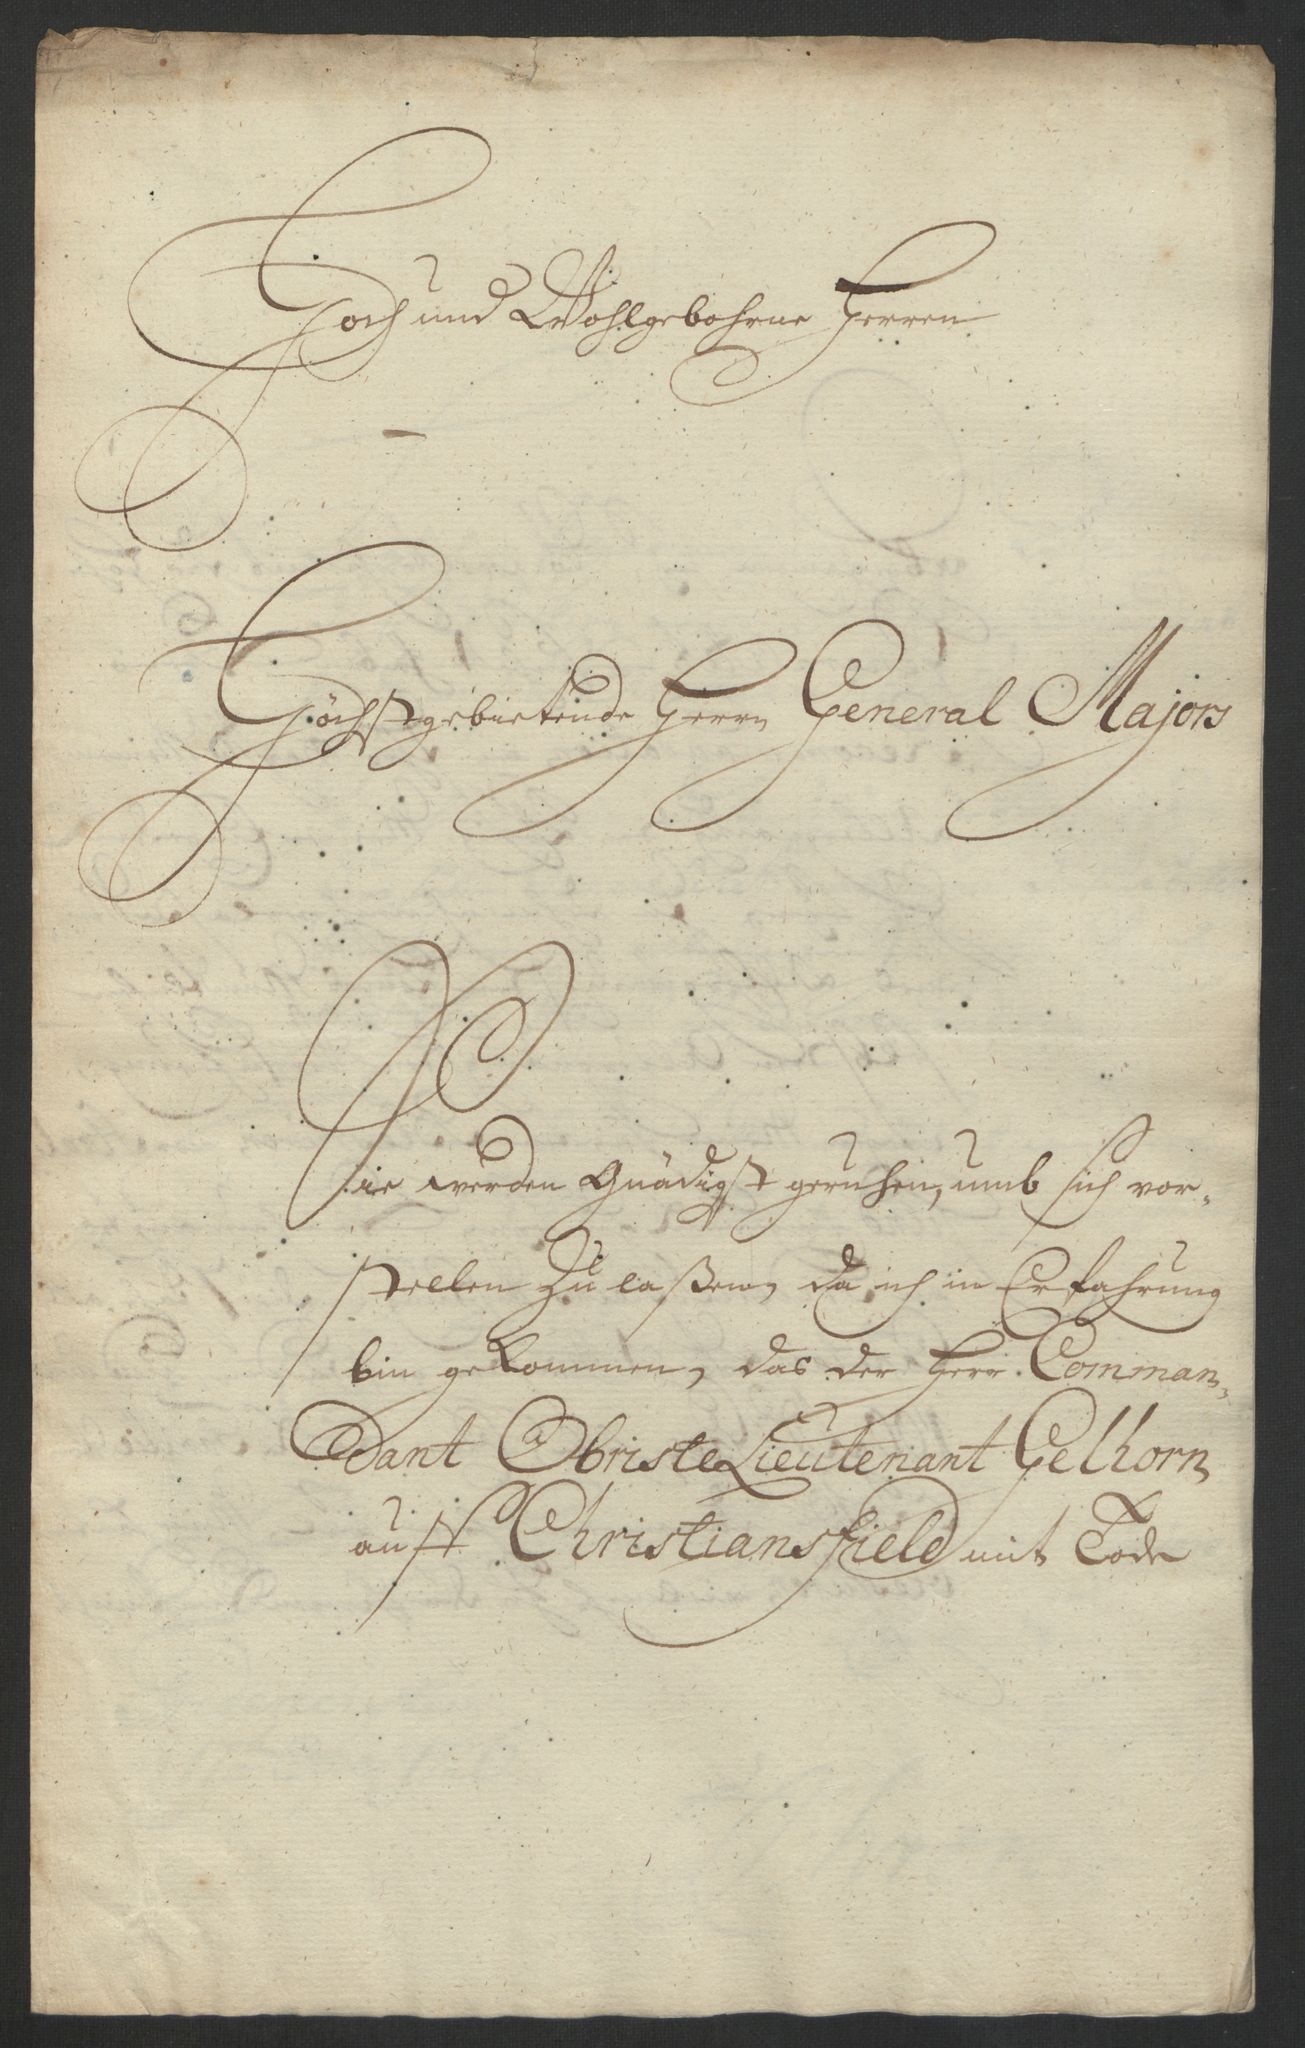 Hoch und Wohlgebohrne Herren
Höchstgebietende Herrn General Majors
Sie werden Gnädigst geruhen, umb sich vor-
stellen zu laßen, da ich in Erfahrung
bin gekommen, das der Herr Comman-
dant Obriste Lieutenant Gelhorn
auff Christiansfield mit Tode